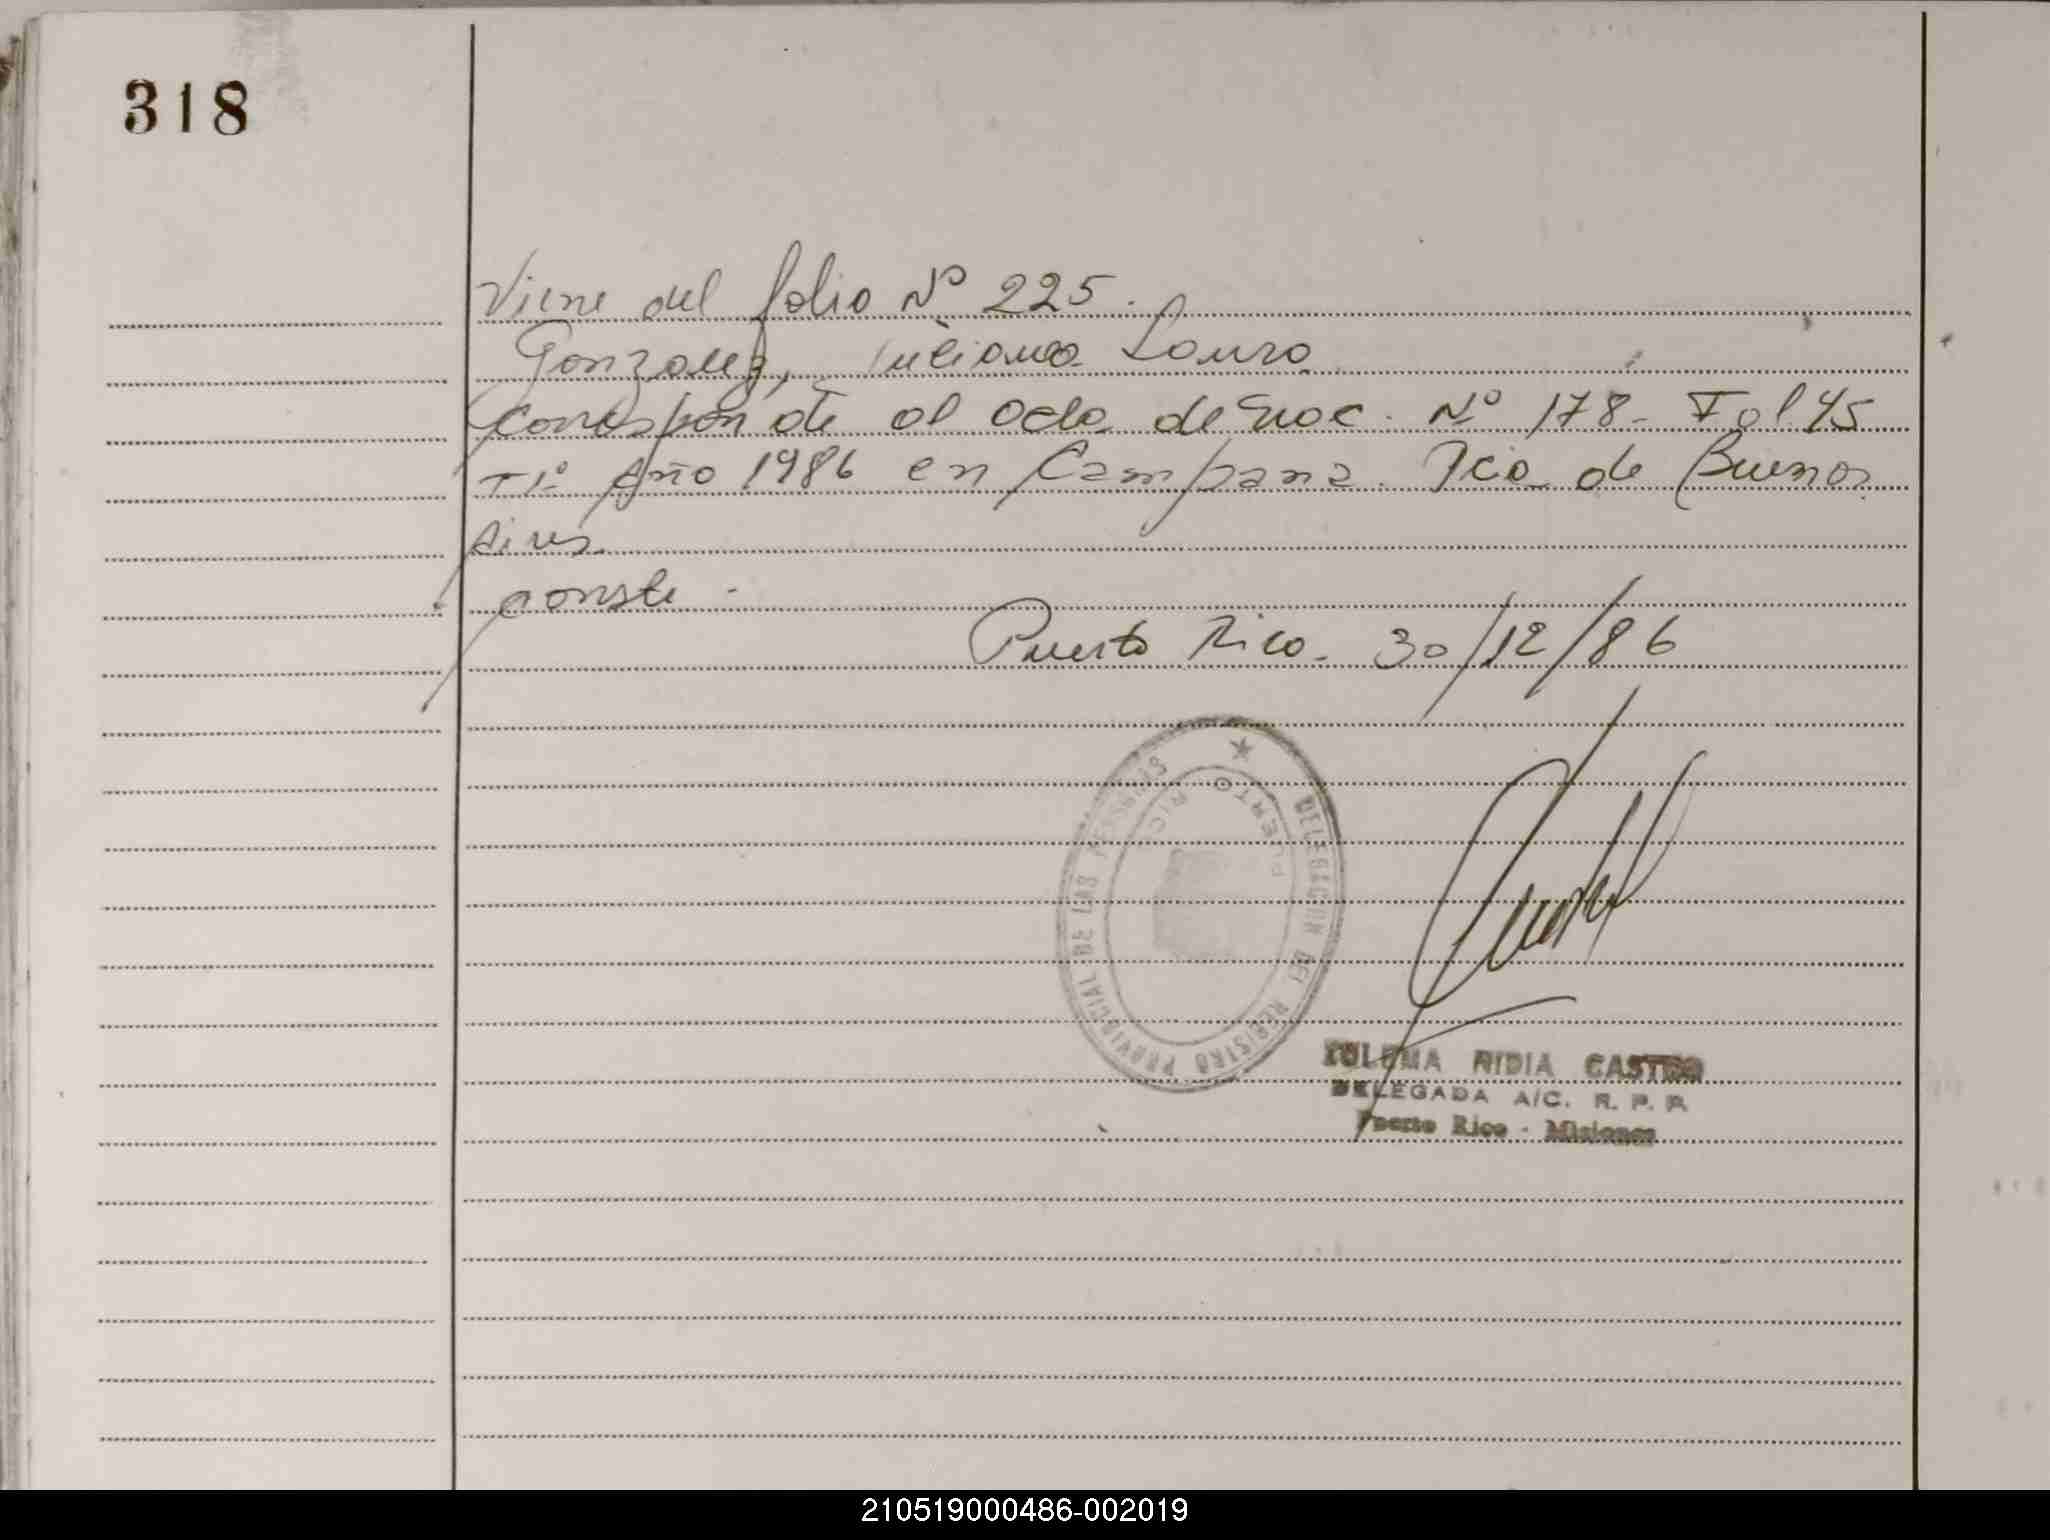 318
Viene del folio Nº 225.
Gonzalez, Luciana Laura
Corresponde al acta de nac. Nº 178 - Fol 45
T1º Año 1986 en Campana. Pcia de Buenos
Aires
conste -
Puerto Rico. 30/12/86
DELEGACION DEL REGISTRO PROVINCIAL DE LAS PERSONAS
PUERTO RICO
ZULEMA NIDIA CASTRO
DELEGADA A/C. R. P. P.
Puerto Rico - Misiones
210519000486-002019